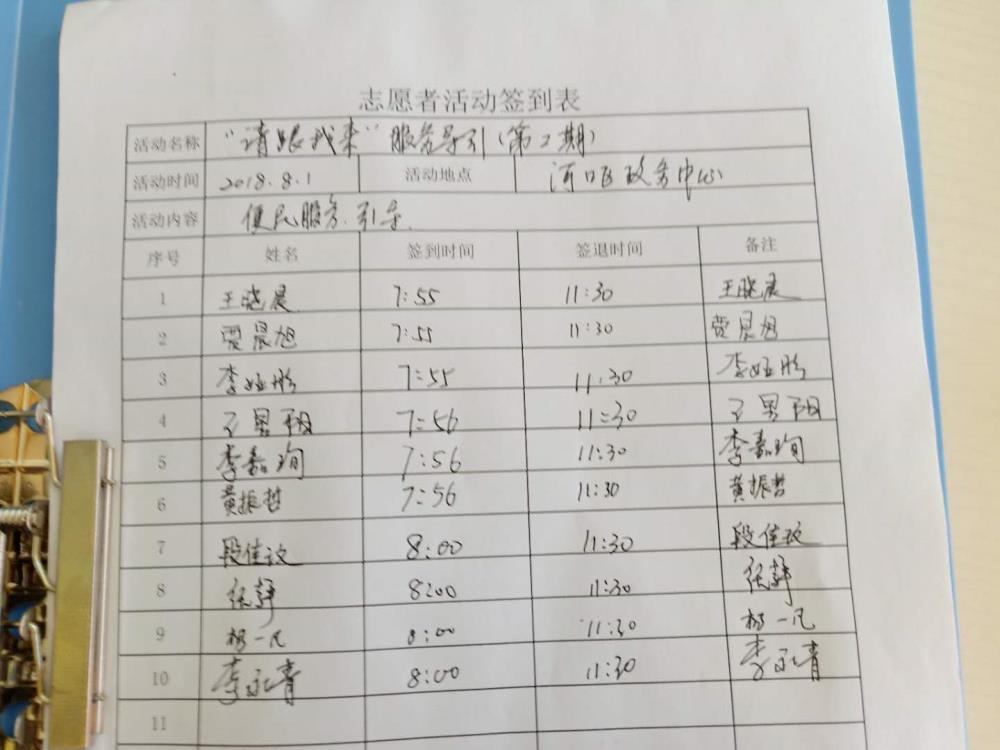 志愿者活动签到表
活动名称 "请跟我来"服务导引(第2期)
活动时间 2018.8.1 活动地点 河口区政务中心
活动内容 便民服务.引导.
序号 姓名 签到时间 签退时间 备注
1 王晓晨 7:55 11:30 王晓晨
2 贾晨旭 7:55 11:30 贾晨旭
3 李娅彤 7:55 11:30 李娅彤
4 7:56 11:30
5 李嘉珣 7:56 11:30 李嘉珣
6 黄振哲 7:56 11:30 黄振哲
7 段佳玟 8:00 11:30 段佳玟
8 张静 8:00 11:30 张静
9 杨一凡 8:00 11:30 杨一凡
10 李永青 8:00 11:30 李永青
11